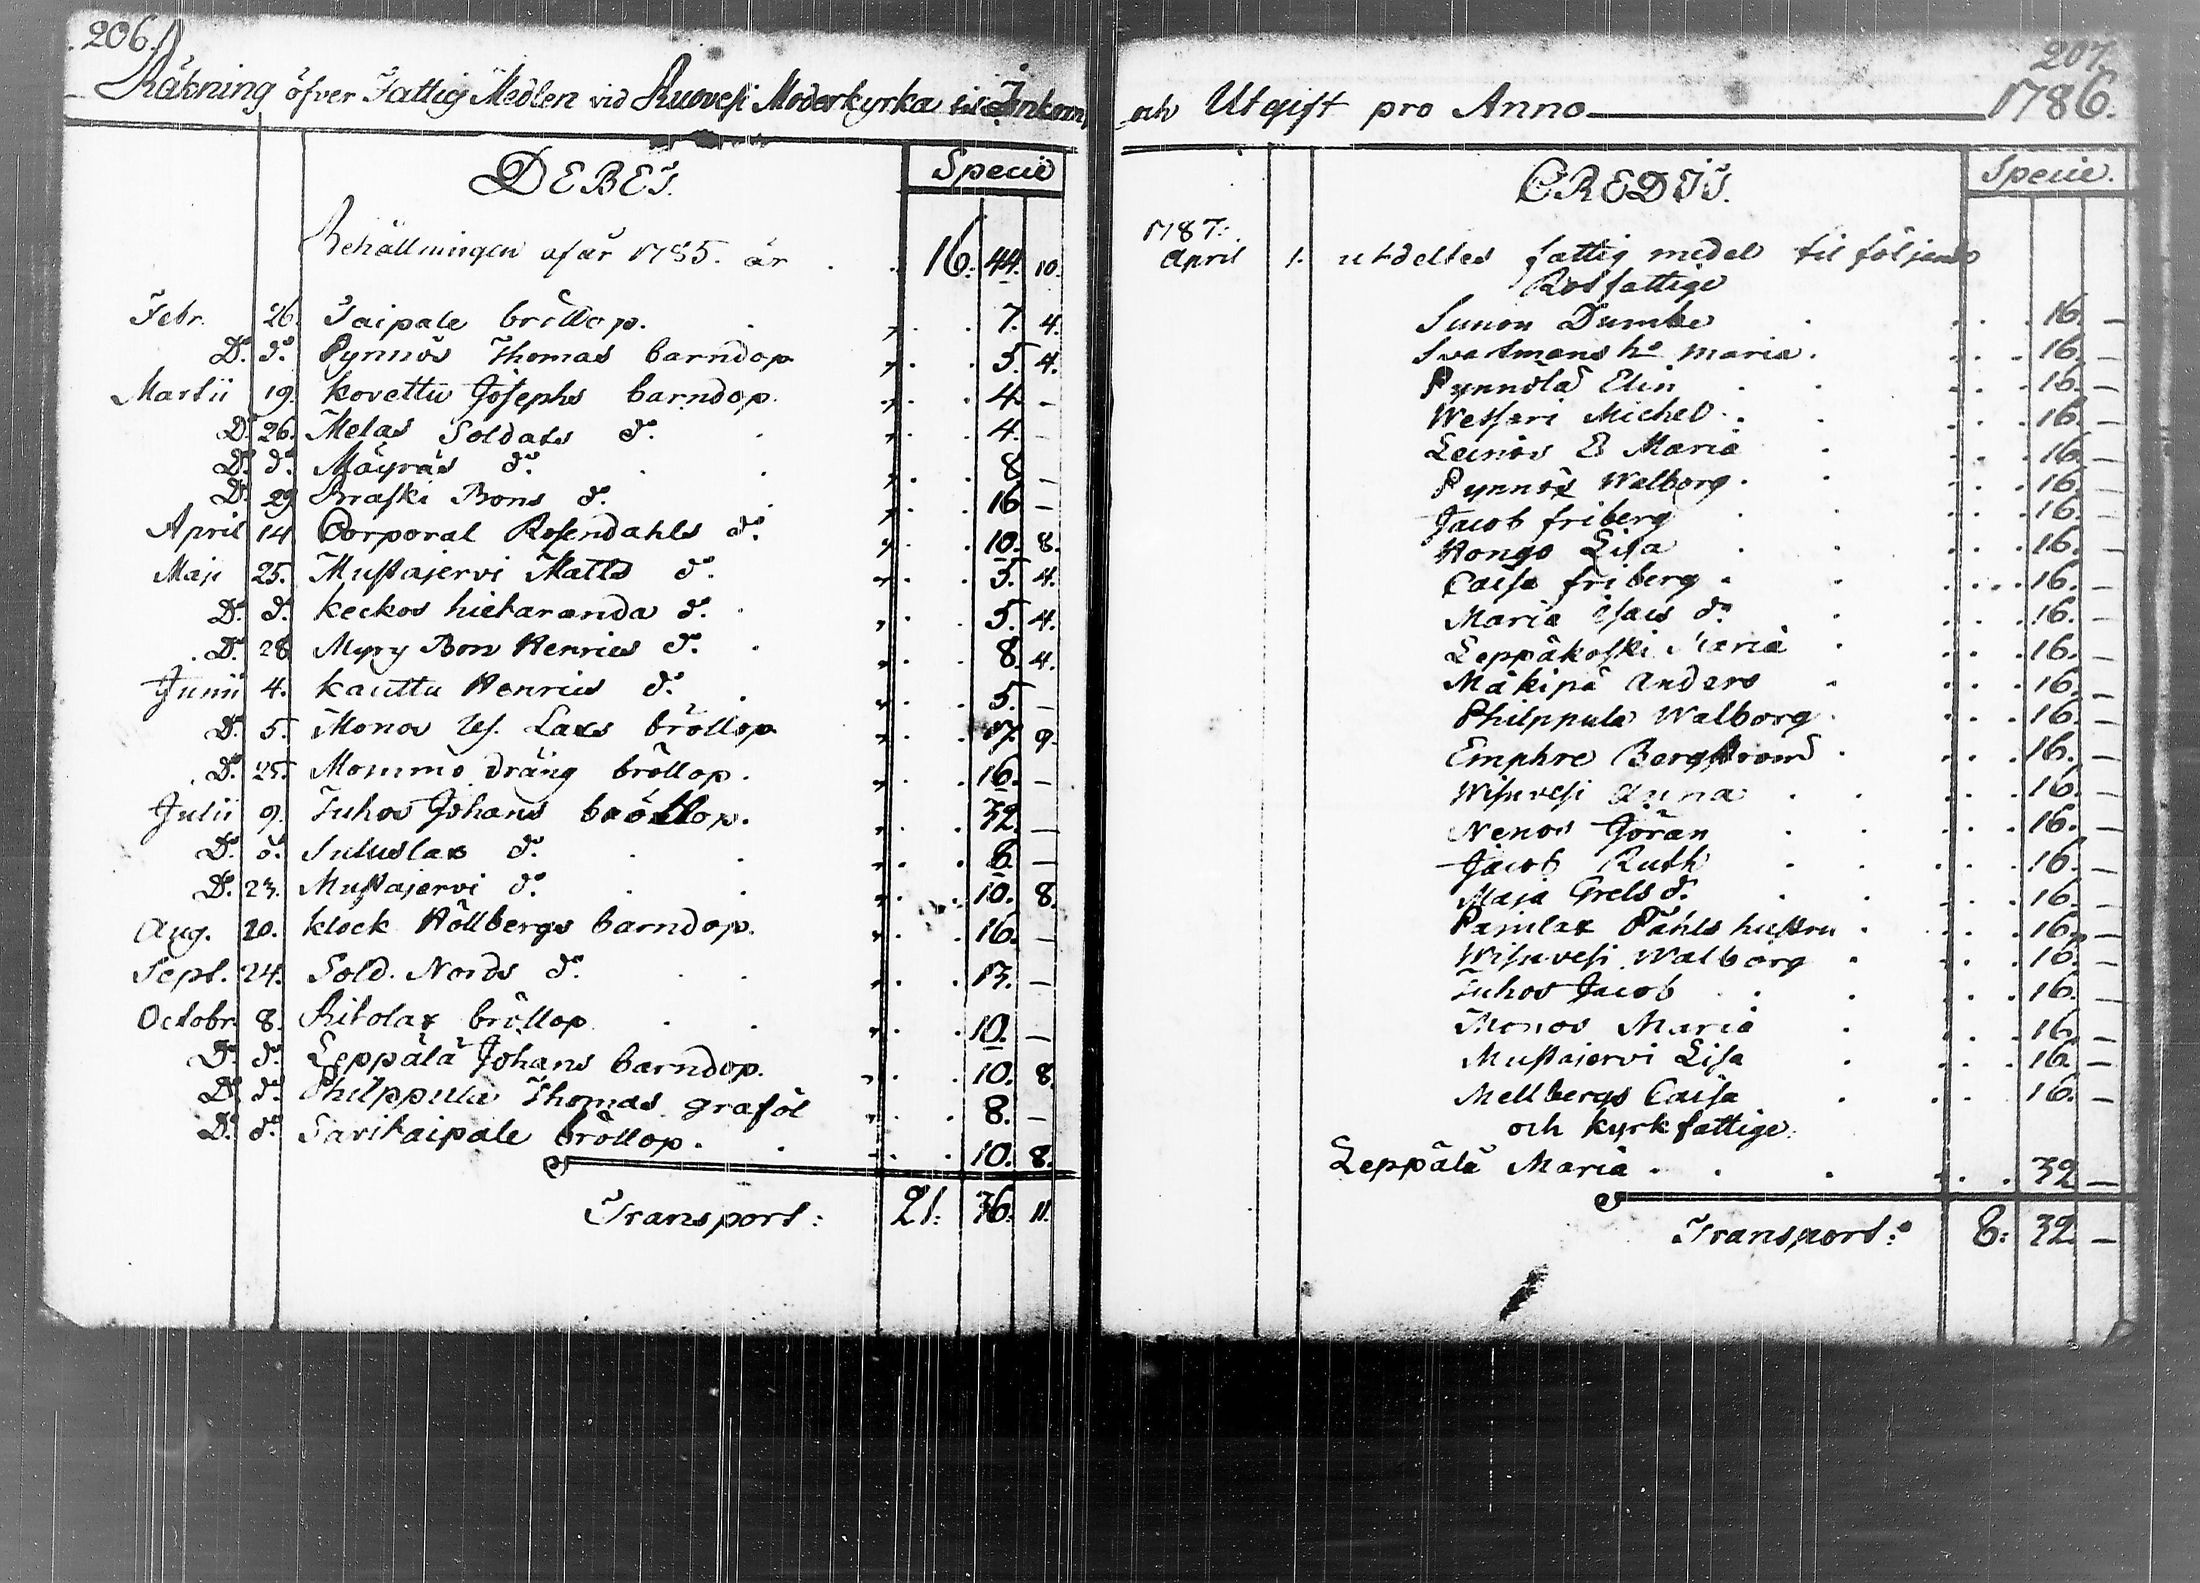 206.
Räkning öfver Fattig Medlen vid Ruovesi Moderkyrka til Inkom
DEBET. Specie
Behållningen af år 1785. är 16. 44. 10.
Febr. 26. Taipale bröllop. 7. 4.
Do. do. Pynnös Thomas barndop 5. 4.
Martii 19. Kovettu Josephs barndop. 4. —
Do. 26. Melas Soldats do. 4. —
Do. do. Mäyräs do. 8 —
Do. 29 Braski Bons do. 16 —
April 14 Corporal Rosendahls do. 10. 8.
Maji 25. Mustajervi Matts do. 5. 4.
Do. do. Keckos hietaranda do. 5. 4.
Do. 28 Myry Bon Henrics do. 8. 4.
Junii 4. Kauttu Henrics do. 5. —
Do. 5. Monos Uf. Lars bröllop 17. 9.
Do. 25. Mommo dräng bröllop. 16. —
Julii 9. Tuhos Johans bröllop. 32. —
Do. do. Suluslax do. 8. —
Do. 23. Mustajervi do. 10. 8.
Aug. 20. Klock Höllbergs barndop. 16. —
Sept. 24. Sold. Nords do. 13. —
Octobr. 8. Ritolax bröllop 10. —
Do. do. Leppälä Johans barndop. 10. 8.
Do. do. Philppula Thomas graföl 8. —
Do. do. Savitaipale bröllop. 10. 8.
Transport: 21: 36. 11.
207.
och Utgift pro Anno 1786.
CREDIT. Specie.
1787:
April 1. utdeltes fattig medel til följande
Rotfattige
Simon Dumbe 16. —
Svartmans ho maria. 16. —
Pynnölä Elin 16. —
Wessari Michel 16. —
Leinos E Maria 16. —
Pynnös Walborg. 16. —
Jacob friberg 16. —
Hongo Lisa 16. —
Caisa friberg 16. —
Maria Isacs do. 16. —
Leppäkoski Maria 16. —
Mäkipä Anders 16. —
Philppula Walborg 16. —
Emphre Bergstrom 16. —
Wisuvesi Anna 16. —
Nenos Göran 16. —
Jacob Ruth 16. —
Maja Grels do. 16. —
Pajulax Påhls hustru 16. —
Wisuvesi Walborg 16. —
Tuhos Jacob 16. —
Monos Maria 16. —
Mustajervi Lisa 16. —
Mellbergs Caisa 16. —
och kyrkfattige:
Leppälä Maria 32 —
Transport: 8: 32. —